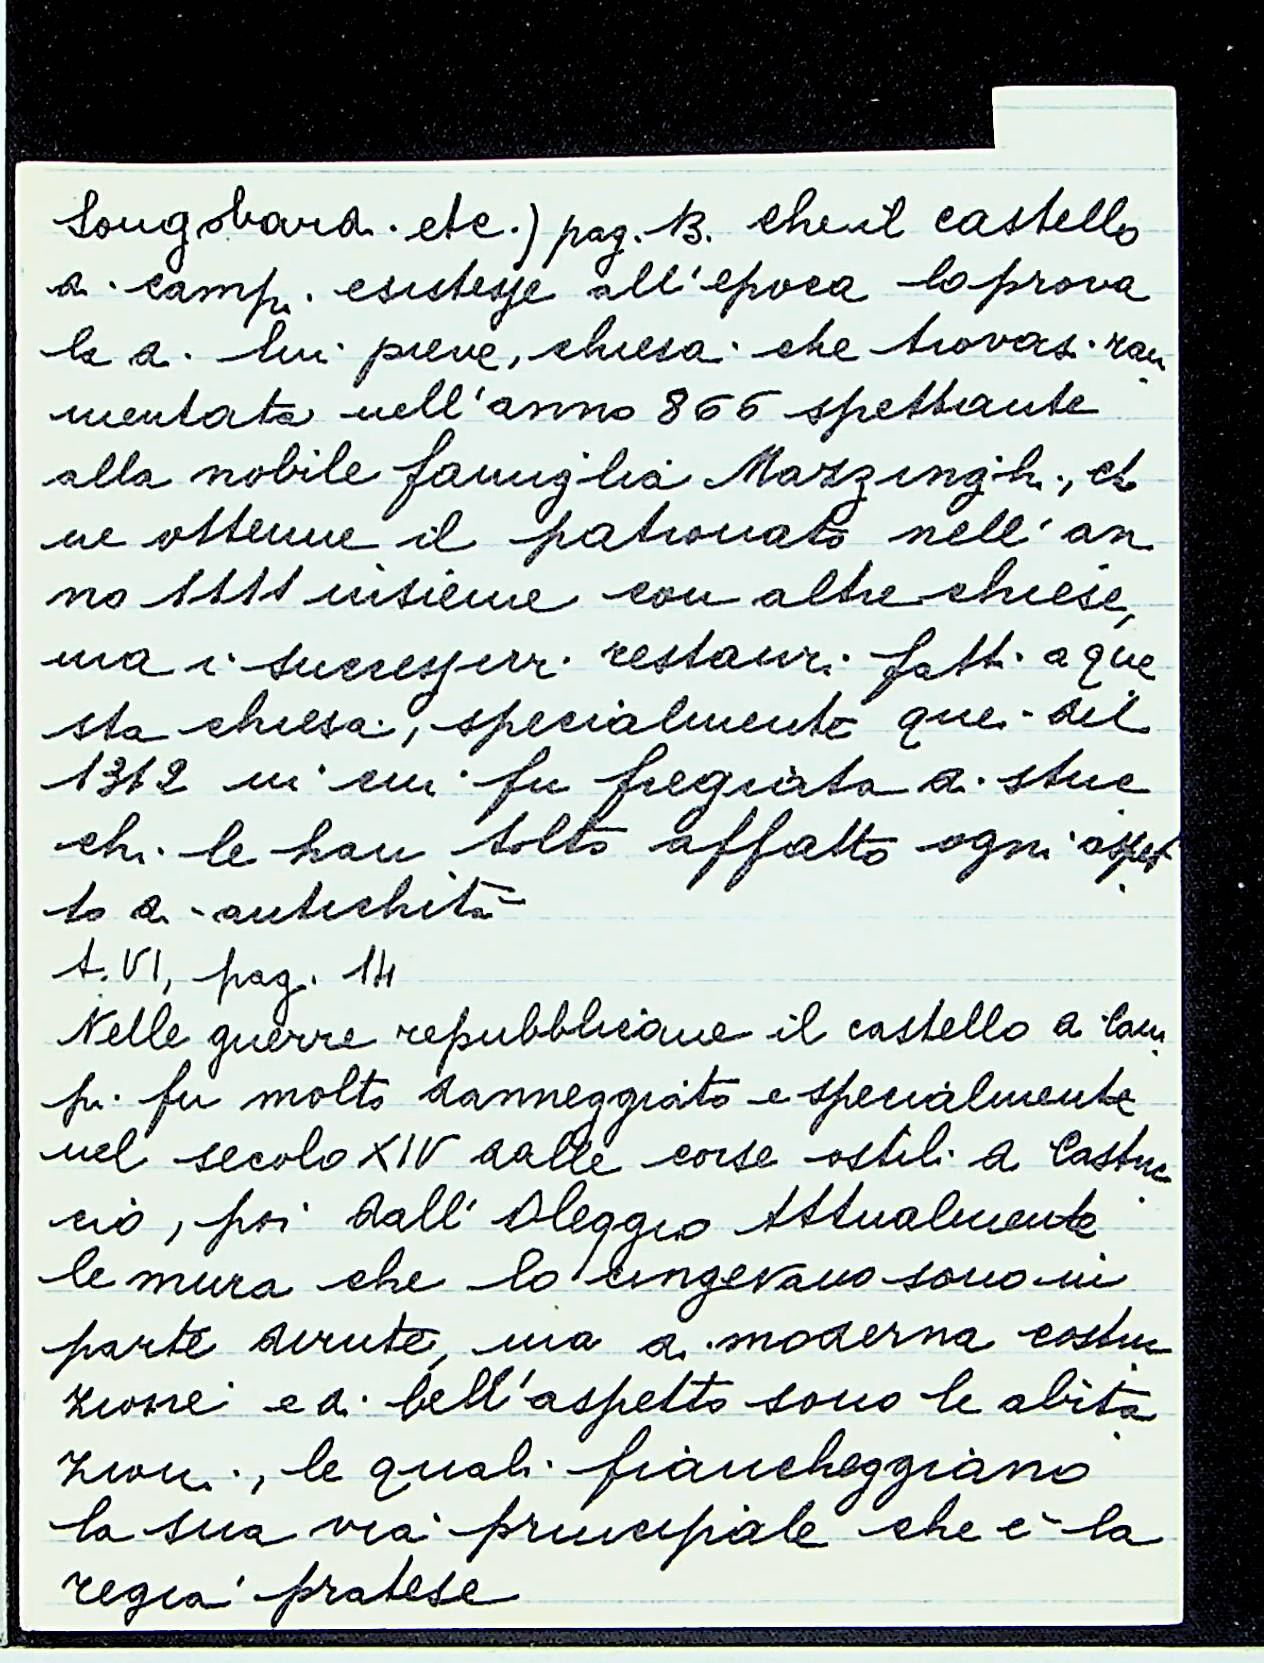 Longobardi. etc.) pag. 13. che il castello
di Campi esistesse all'epoca lo prova
la di lui pieve, chiesa che trovasi ram
mentata nell'anno 866 spettante
alla nobile famiglia Mazzinghi, che
ne ottenne il patronato nell'an
no 1111 insieme con altre chiese,
ma i successivi restauri fatti a que
sta chiesa, specialmente quei del
1312 in cui fu fregiata di stuc
chi le han tolto affatto ogni aspet
to di antichità
t. VI, pag. 14
Nelle guerre repubblicane il castello di Cam
pi fu molto danneggiato e specialmente
nel secolo XIV dalle corse ostili di Castruc
cio, poi dall'Oleggio Attualmente
le mura che lo cingevano sono in
parte dirute, ma di moderna costru
zione e di bell'aspetto sono le abita
zioni, le quali fiancheggiano
la sua via principale che è la
regia pratese